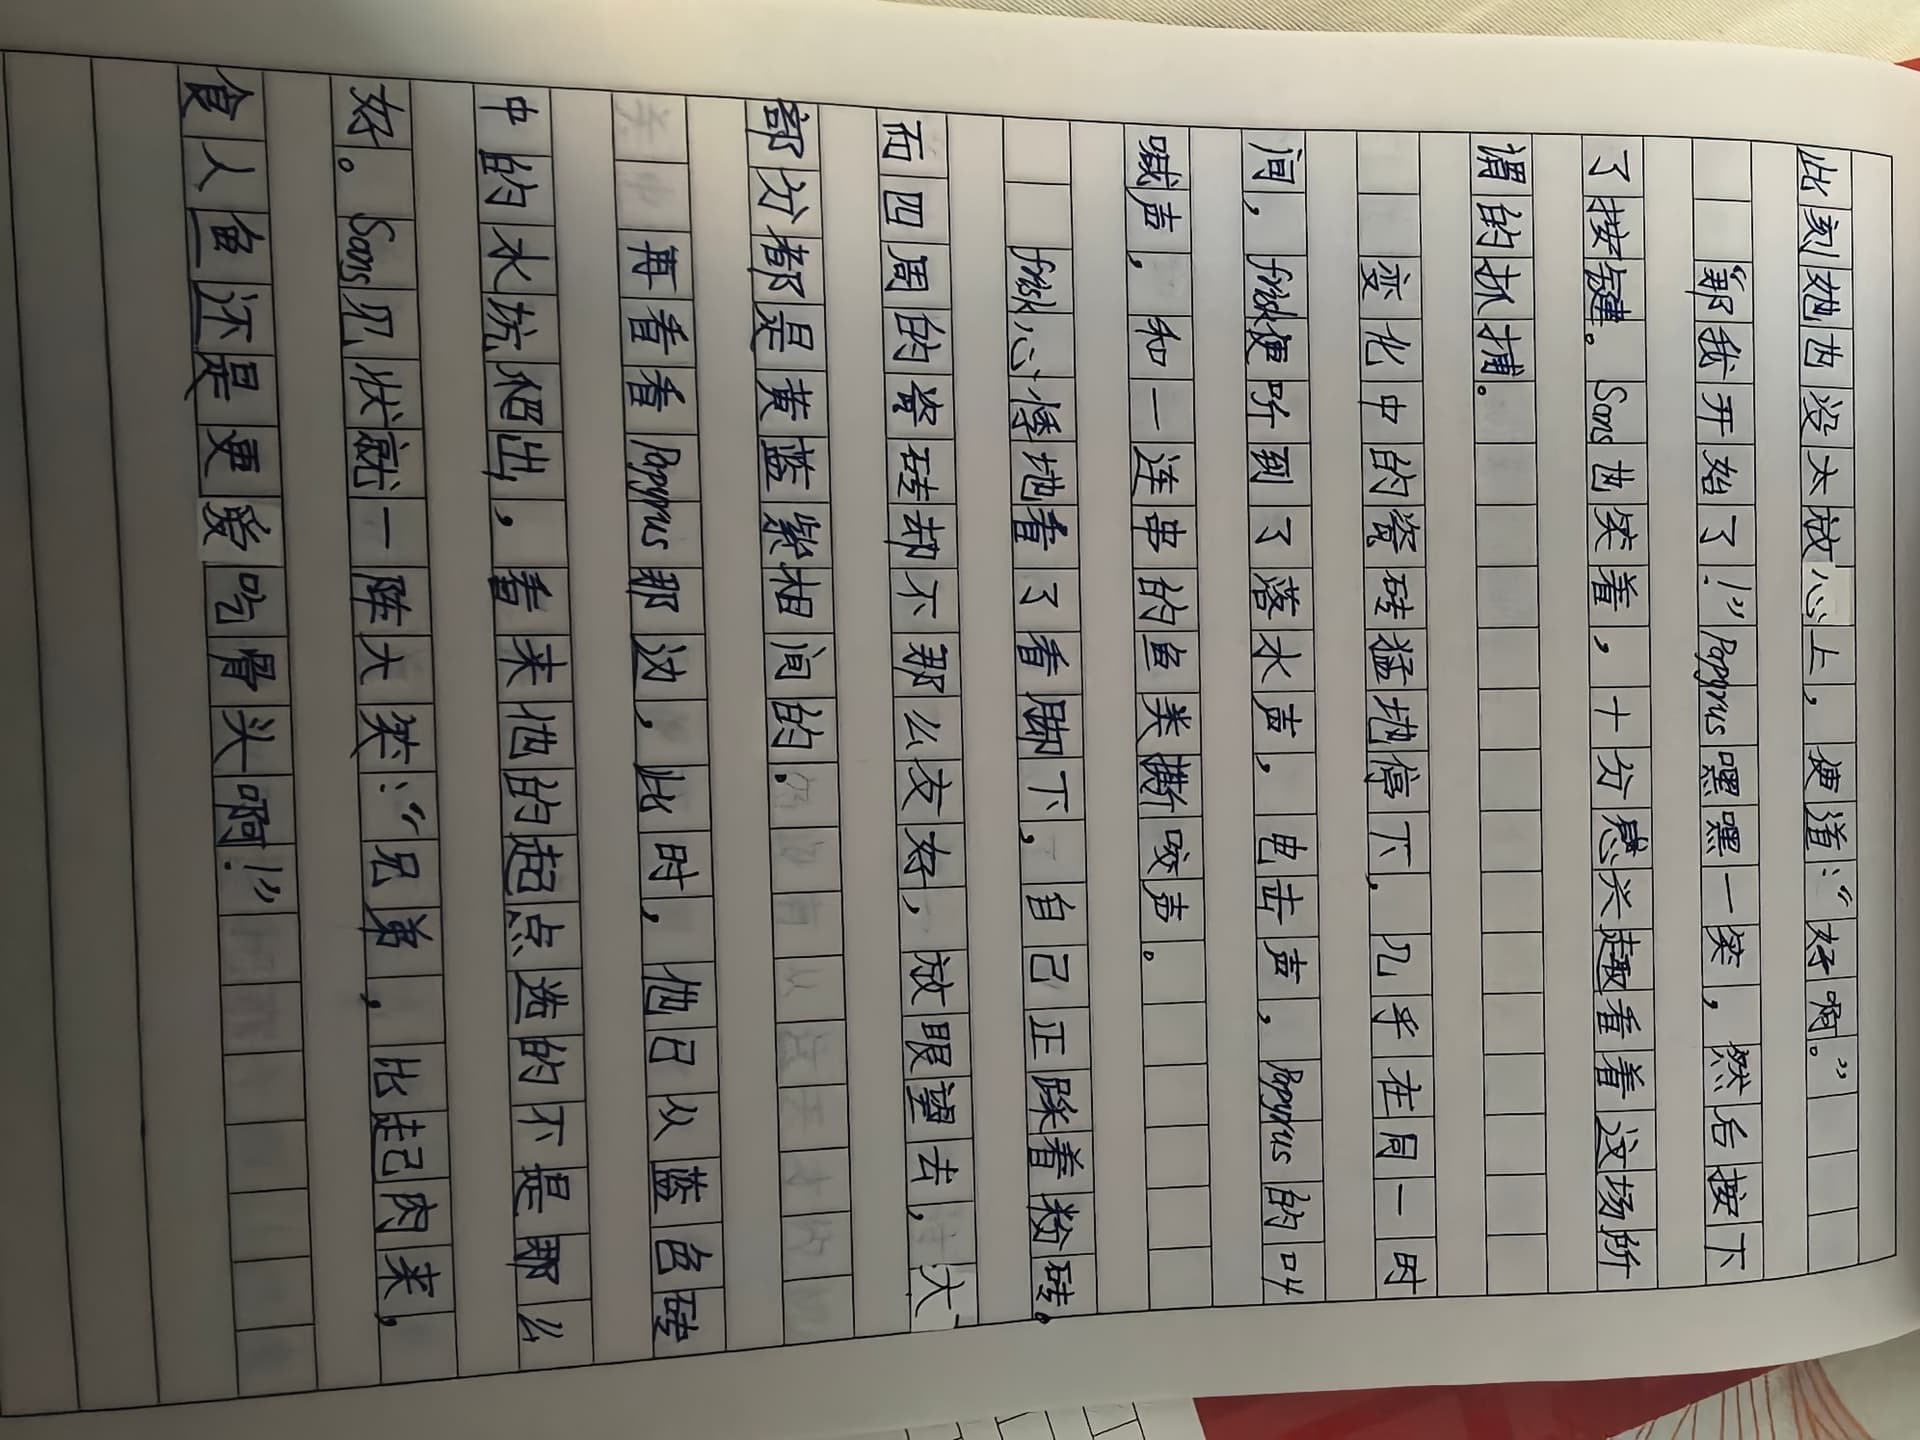 此刻她也没太放心上，便道：“好啊。”
“那我开始了！”Papyrus嘿嘿一笑，然后按下
了按键。Sans也笑着，十分感兴趣看着这场所
谓的抓捕。
变化中的瓷砖猛地停下，几乎在同一时
间，frisk便听到了落水声，电击声，Papyrus的叫
喊声，和一连串的鱼类撕咬声。
frisk心悸地看了看脚下，自己正踩着粉砖。
而四周的瓷砖却不那么友好，放眼望去，大
部分都是黄蓝紫相间的.
再看看Papyrus那边，此时，他已从蓝色砖
中的水坑爬出，看来他的起点选的不是那么
好。Sans见状就一阵大笑：“兄弟，比起肉来，
食人鱼还是更爱吃骨头啊！”